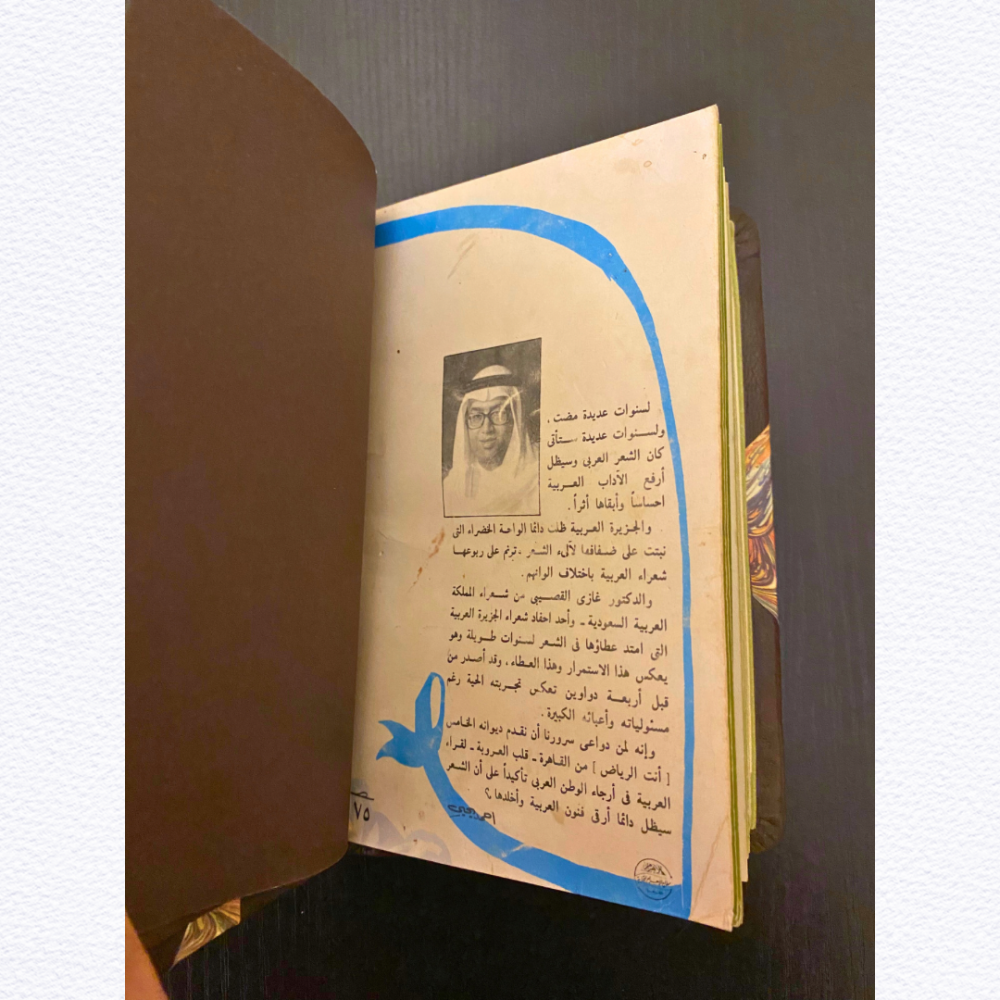 لسنوات عديدة مضت .
ولسنوات عديدة ستأتى
كان الشعر العربى وسيظل
أرفع الآداب العربية
احساساً وأبقاها أثراً .
والجزيرة العربية ظلت دائما الواحة الخضراء التى
نبتت على ضفافها لآلىء الشعر ـ ترنم على ربوعها
شعراء العربية باختلاف الوانهم .
والدكتور غازى القصيبى من شعراء المملكة
العربية السعودية ـ وأحد احفاد شعراء الجزيرة العربية
التى امتد عطاؤها فى الشعر لسنوات طويلة وهو
يعكس هذا الاستمرار وهذا العطاء ، وقد أصدر من
قبل أربعة دواوين تعكس تجربته الحية رغم
مسئولياته وأعبائه الكبيرة .
وإنه لمن دواعى سرورنا أن نقدم ديوانه الخامس
[ أنت الرياض ] من القاهرة ـ قلب العروبة ـ لقراء
العربية فى أرجاء الوطن العربى تأكيداً على أن الشعر
سيظل دائما أرقى فنون العربية وأخلدها ؟
٧٥